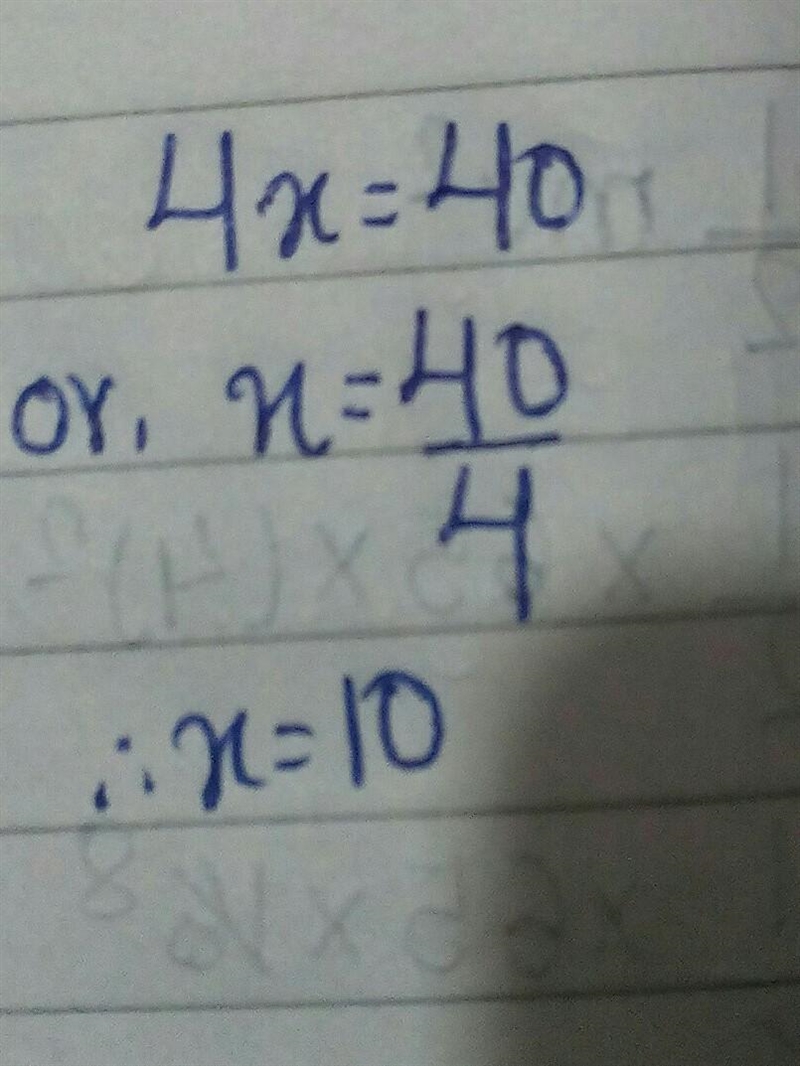 4x = 40
or, x = 40/4
∴ x = 10